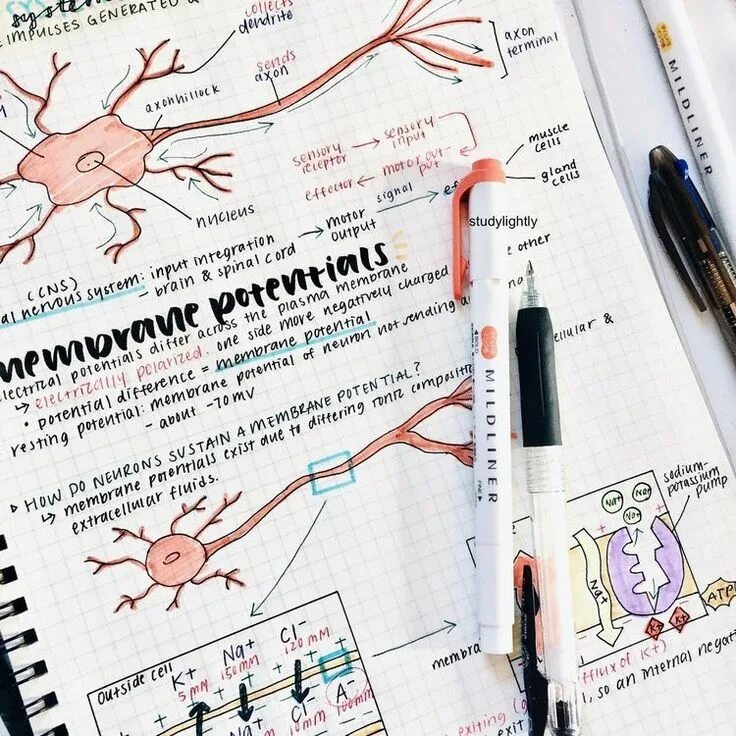 system
E IMPULSES GENERATED &
collects
dendrite
sends
axon
axon
terminal
axonhillock
nucleus
sensory
receptor → sensory
input
effector ← motor out-
put
signal
muscle
cells
gland
cells
studylightly
(CNS)
al nervous system: input integration → motor
output
- brain & spinal cord
membrane potentials
electrical potentials differ across the plasma membrane
↳ electrically polarized: one side more negatively charged
other
• potential difference = membrane potential
resting potential: membrane potential of neuron not sending a
- about -70mV
cellular &
▷ HOW DO NEURONS SUSTAIN A MEMBRANE POTENTIAL?
↳ membrane potentials exist due to differing ionic compositio
extracellular fluids.
MILDLINER
MILDLINER
sodium-
potassium
pump
Na+
Na+
Na+
Na+
ATP
K+
K+
outside cell
K+
5 mM
Na+
150mM
Cl-
120 mM
Na+
Cl-
10mM
A-
100mM
membra
fflux of K+)
, so an internal negat
exiting (
exit